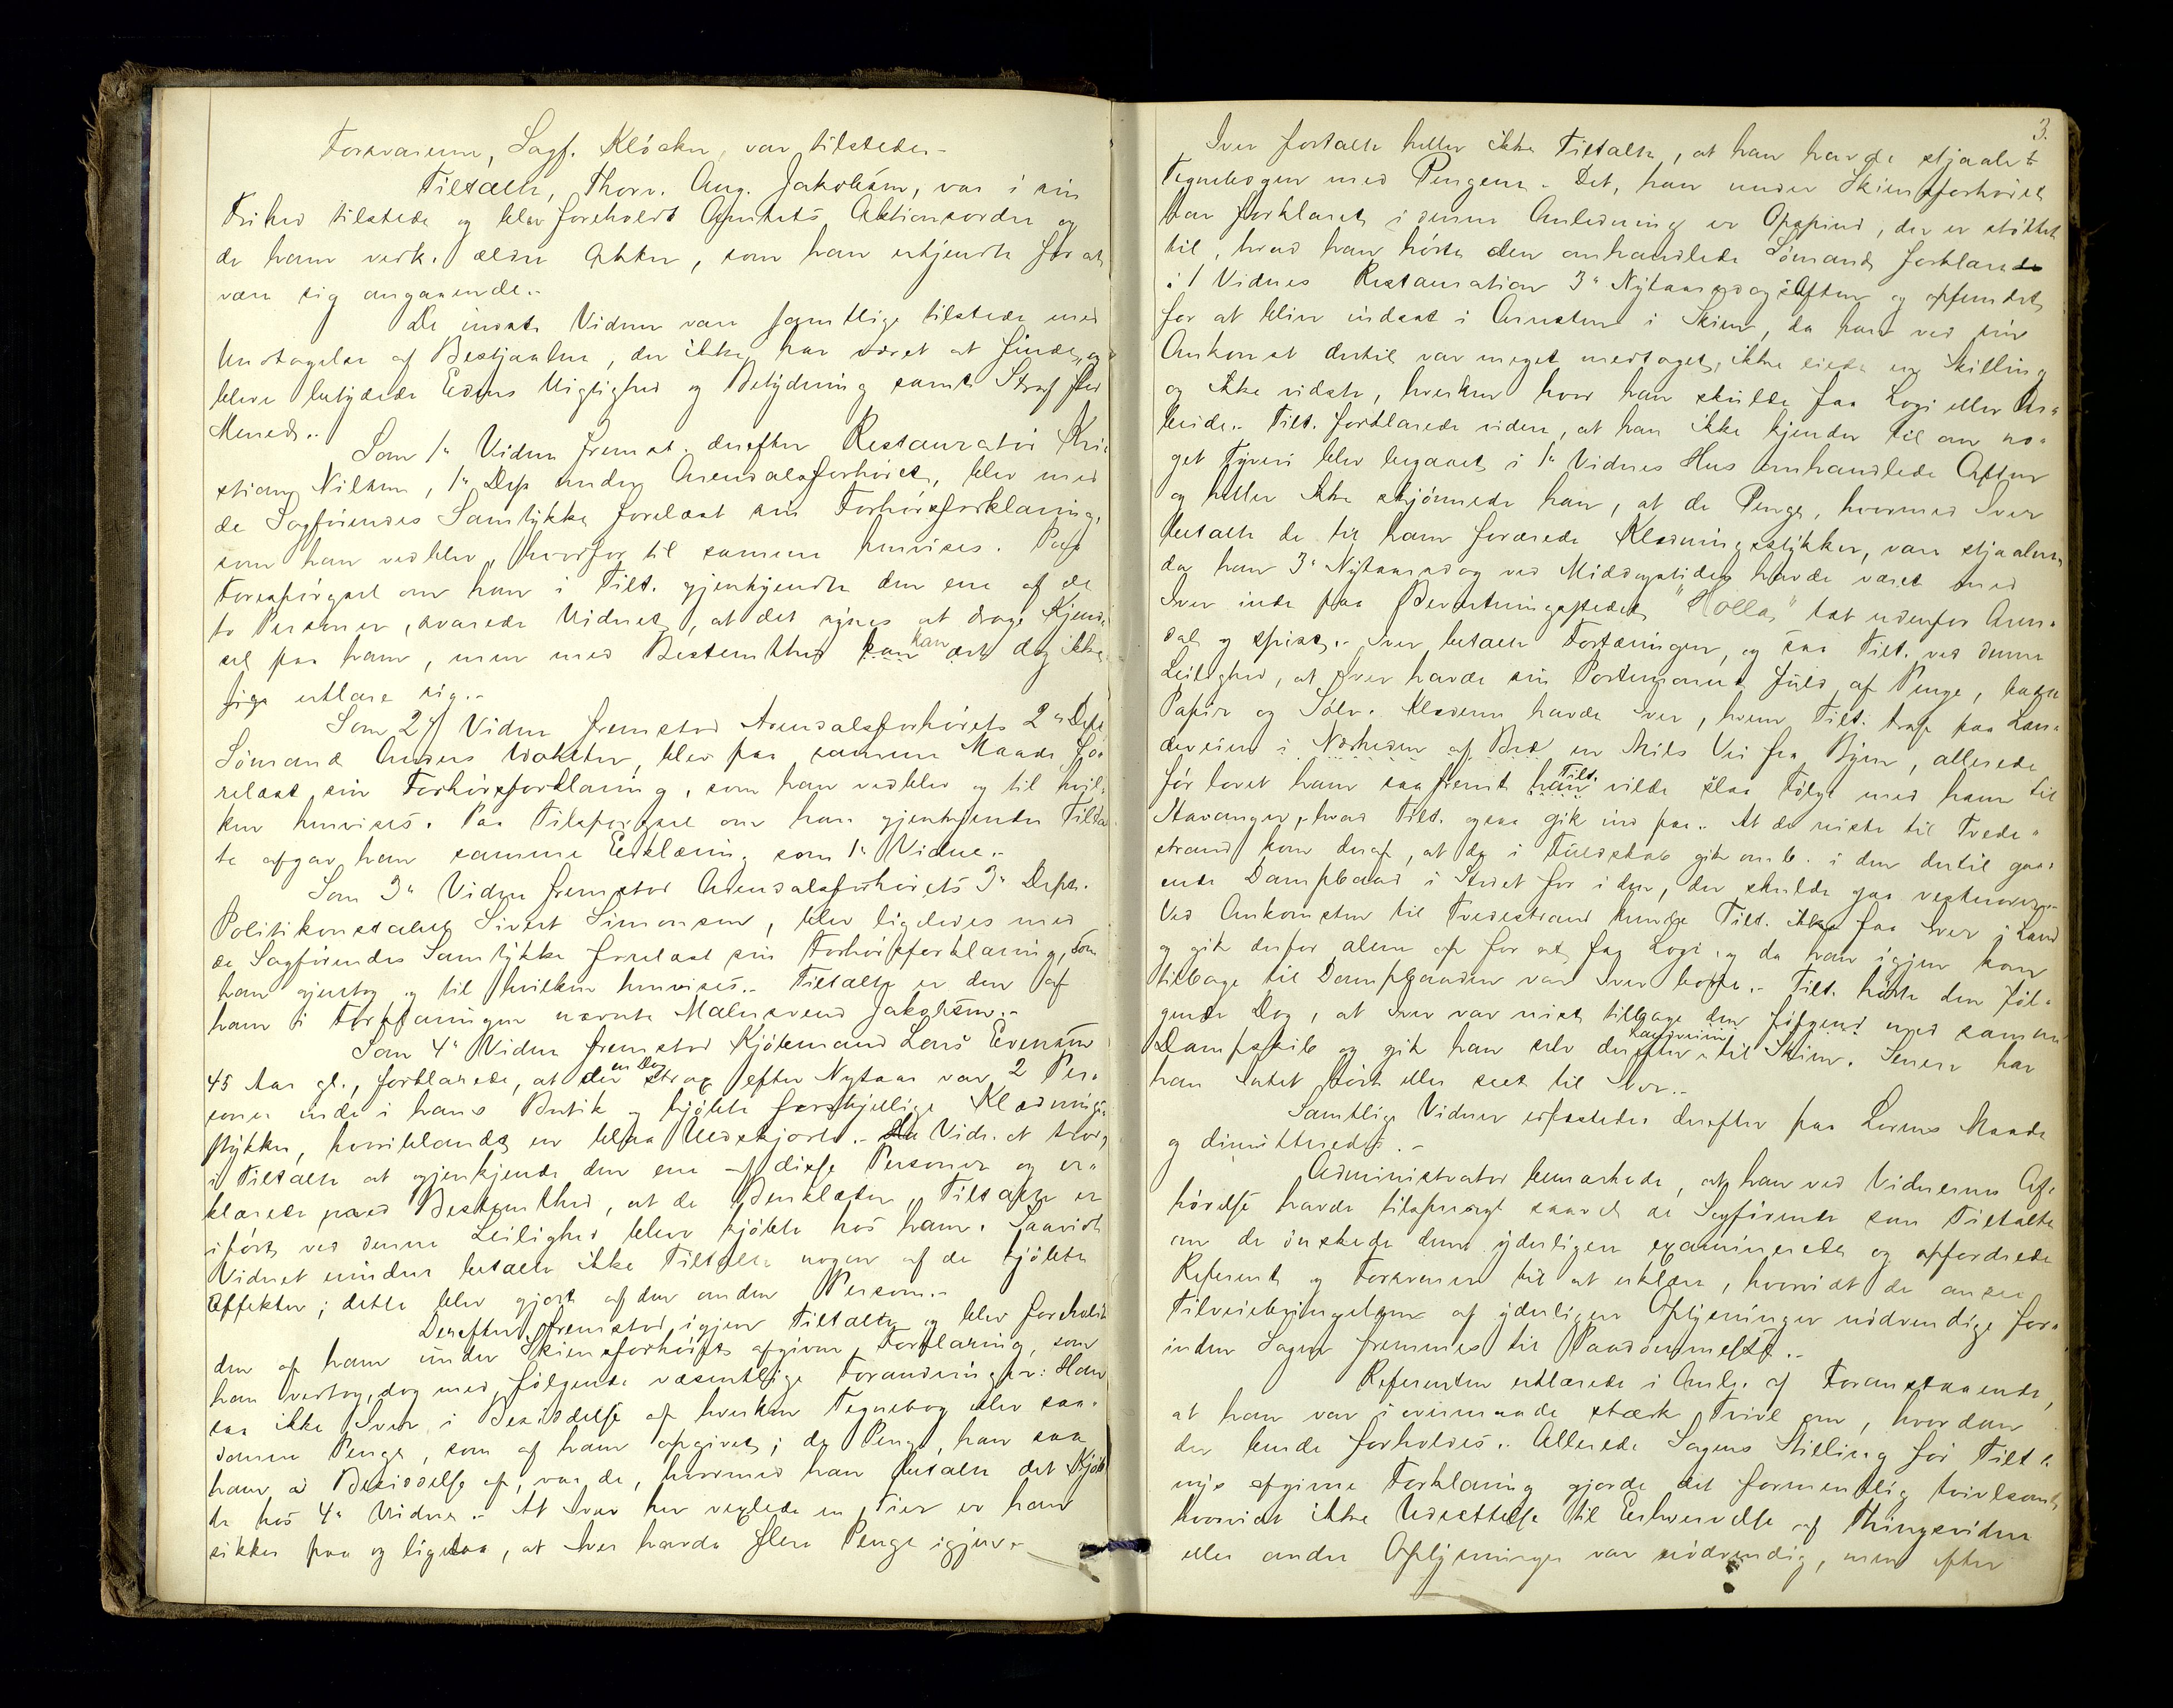 Forsvareren, Sagf. Klöcker, var tilstede.-
Tiltalte, Thorv. Aug. Jakobsen, var i sin
Frihed tilstede og blev foreholdt Amtets Aktionsordre og
de ham vedk. ældre Akter, som han erkjendte for at
være sig angaaende.-
De indst. Vidner vare samtlige tilstede med
Undtagelse af Bestjaalne, der ikke har været at finde, og
bleve betydede Edens Vigtighed og Betydning samt Straf for
Mened.-
Som 1ste Vidne fremst. derefter Restauratør Kri-
stian Nilsen, 1ste Dep. under Arendalsforhöret, blev med
de Sagförendes Samtykke forelæst sin Forhörsforklaring,
som han vedblev, hvorfor til samme henvises. Paa
Forespörgsel om han i Tilt. gjenkjendte den ene af de
to Personer, svarede Vidnet, at det synes at drage Kjend-
sel paa ham, men med Bestemthed kan han det dog ikke
sige udlade sig.-
Som 2det Vidne fremstod Arendalsforhörets 2det Dep.
Sömand Anders , blev paa samme Maade fo-
relæst sin Forhörsforklaring, som han vedblev og til hvil-
ken henvises. Paa Tilspörgsel om han gjenkjendte Tiltal-
te afgav han samme Erklæring som 1ste Vidne.-
Som 3die Vidne fremstod Arendalsforhörets 3die Dept.
Politikonstabel Sivert Simonsen, blev ligeledes med
de Sagförendes Samtykke forelæst sin Forhörsforklaring, som
han gjentog og til hvilken henvises.- Tiltalte er den af
ham i Forklaringen nævnte Malersvend Jakobsen.-
Som 4de Vidne fremstod Kjöbmand Lars Evensen
45 Aar gl., forklarede, at der en Dag strax efter Nytaar var 2 Per-
soner inde i hans Butik og kjöbte forskjellige Klædnings-
stykker, hvoriblandt en blaa Uldskjorte.- Vidnet tror
i Tiltalte at gjenkjende den ene af disse Personer og er-
klærede med Bestemthed, at de Benklæder, Tiltalte er
iført ved denne Leilighed, bleve kjöbte hos ham. Saavidt
Vidnet mindes betalte ikke Tiltalte nogen af de kjöbte
Effekter; dette blev gjort af den anden Person.-
Derefter fremstod igjen Tiltalte og blev foreholdt
den af ham under Skiensforhöret afgivne Forklaring, som
han vedtog, dog med fölgende væsentlige Forandringer: Han
saa ikke Iver i Besiddelse af hverken Tegnebog eller saa-
danne Penge, som af ham opgivet; de Penge, han saa
ham i Besiddelse af, var de, hvormed han betalte det Kjöb-
te hos 4de Vidne.- At Iver her vexlede en Tier er han
sikker paa og ligesaa, at Iver havde flere Penge igjen.-
3.
Iver fortalte heller ikke Tiltalte, at han havde stjaalet
Tegnebogen med Pengene.- Det, han under Skiensforhöret
har forklaret i denne Anledning er Opspind, der er stöttet
til, hvad han hörte den omhandlede Sömand forklare
i 1 Vidnes Restauration 3die Nytaarsdagsaften og opfundet
for at blive indsat i Arresten i Skien, da han ved sin
Ankomst dertil var meget medtaget, ikke eiede en Skilling
og ikke vidste, hverken hvor han skulde faa Logi eller Ar-
beide.- Tilt. forklarede videre, at han ikke kjender til om no-
get Tyveri blev begaaet i 1ste Vidnes Hus omhandlede Aften
og heller ikke skjönnede han, at de Penge, hvormed Iver
betalte de til ham forærede Klædningsstykker, vare stjaalne,
da han 3die Nytaarsdag ved Middagstider havde været med
Iver inde paa Bevertningsstedet "Holla" tæt udenfor Aren-
dal og spist.- Iver betalte Fortæringen, og saa Tilt. ved denne
Leilighed, at Iver havde sin Portemonnæ fuld af Penge, baade
Papir og Sölv. Klæderne havde Iver, hvem Tilt. traf paa Lan-
deveien i Nærheden af en Mils Vei fra Byen, allerede
för lovet ham saafremt han Tilt. vilde slaa Fölge med ham til
Stavanger, hvad Tilt. ogsaa gik ind paa.- At de reiste til Tvede-
strand kom deraf, at de i Fuldskab gik omb. i den dertil gaa-
ende Dampbaad i Stedet for i den, der skulde gaa vestover.-
Ved Ankomsten til Tvedestrand kunde Tilt. ikke faa Iver i Land
og gik derfor alene op for at faa Logi, og da han igjen kom
tilbage til Dampbaaden var Iver borte.- Tilt. hörte den föl-
gende Dag, at Iver var reist tilbage den fölgend med samme
Dampskib og gik han selv derefter Landeveien til Skien. Senere har
han Intet hört eller seet til Iver.-
Samtlige Vidner edfæstedes derefter paa Lovens Maade
og dimitteredes.-
Administrator bemærkede, at han ved Vidnernes Af-
hörelse havde tilspurgt saavel de Sagförende som Tiltalte
om de önskede dem yderligere examinerede og opfordrede
Referent og Forsvarer til at erklære, hvorvidt de ansee
Tilveiebringelsen af yderligere Oplysninger nödvendige for-
inden Sagen fremmes til Paadömmelse.-
Referenten erklærede i Anl. af Foranstaaende,
at han var i overmaade stærk Tvivl om, hvordan
der burde forholdes.- Allerede Sagens Stilling för Tilt.s
nys afgivne Forklaring gjorde det formentlig tvivlsomt,
hvorvidt ikke Udsættelse til Erhvervelse af Thingsvidne
eller andre Oplysninger var nödvendig, men efter